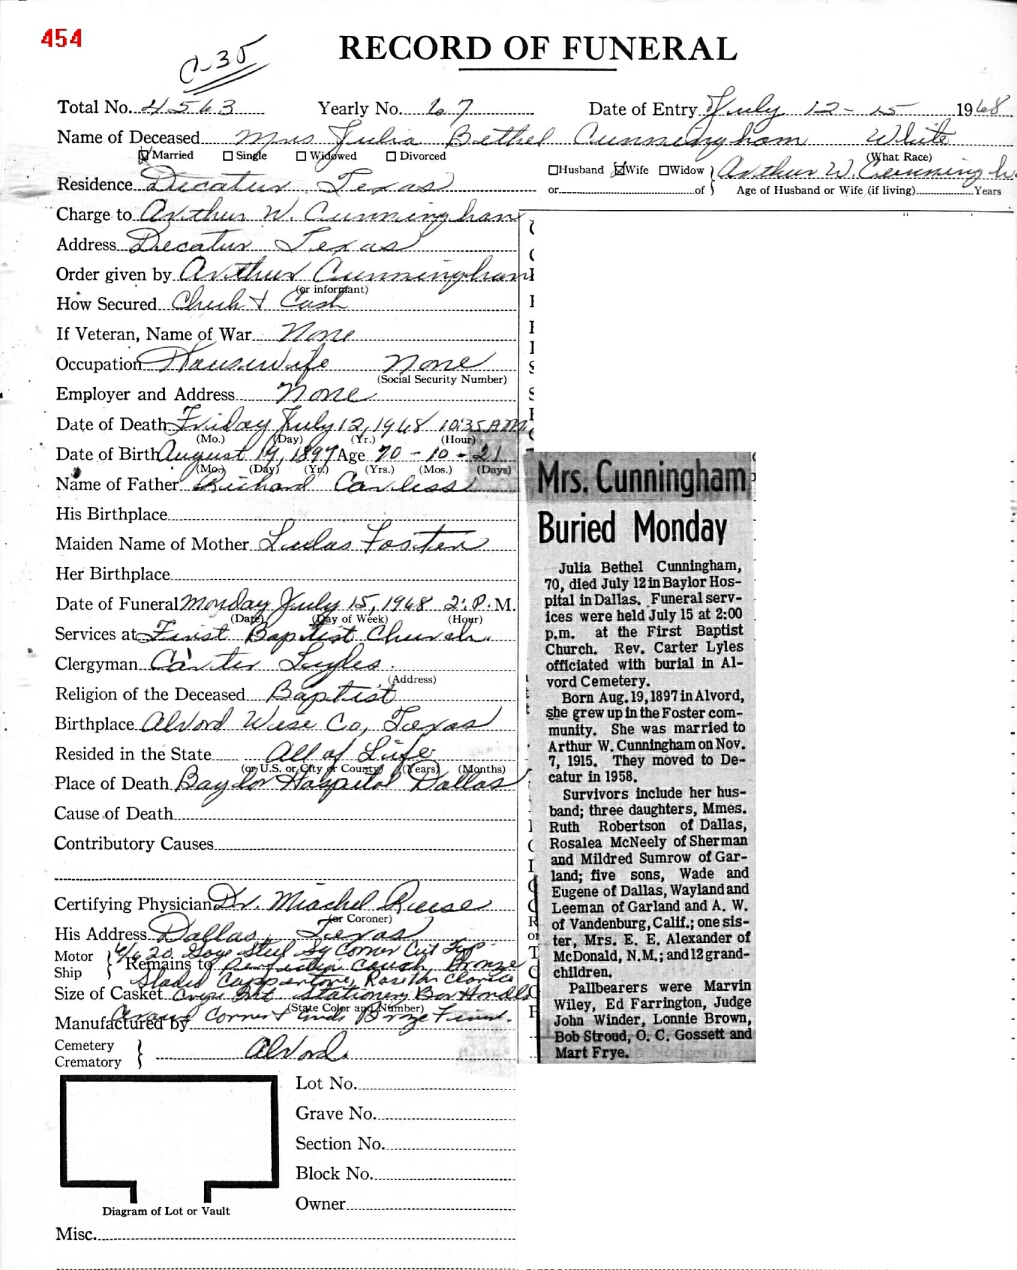 454
C-35
RECORD OF FUNERAL
Total No. 4563 Yearly No. 67 Date of Entry July 12-15 1968
Name of Deceased Mrs Julia Bethel Cunningham White
Married Single Widowed Divorced (What Race)
Husband Wife Widow Arthur W. Cunningh
Residence Decatur Texas or of Age of Husband or Wife (if living) Years
Charge to Arthur W. Cunningham
Address Decatur Texas
Order given by Arthur Cunningham
(or informant)
How Secured Check & Cash
If Veteran, Name of War None
Occupation Housewife None
(Social Security Number)
Employer and Address None
Date of Death Friday July 12, 1968 10:35 AM
(Mo.) (Day) (Yr.) (Hour)
Date of Birth August 19, 1897 Age 70 - 10 - 21
(Mo.) (Day) (Yr.) (Yrs.) (Mos.) (Days)
Name of Father Richard Carless
His Birthplace
Maiden Name of Mother Lulas Foster
Her Birthplace
Date of Funeral Monday July 15, 1968 2: P. M.
(Date) (Day of Week) (Hour)
Services at First Baptist Church
Clergyman Carter Lyles.
(Address)
Religion of the Deceased Baptist
Birthplace Alvord Wise Co, Texas
Resided in the State All of Life
(or U.S. or City or County) (Years) (Months)
Place of Death Baylor Hospital Dallas
Cause of Death
Contributory Causes
Certifying Physician Dr. Miachel Reese
(or Coroner)
His Address Dallas, Texas
Motor
Ship
Remains to
20 Gage Steel Sq Corner Cut Top
Size of Casket Stationery Bar Handles
(State Color and Number)
Manufactured by Corner
Cemetery
Crematory Alvord
Lot No.
Grave No.
Section No.
Block No.
Owner
Diagram of Lot or Vault
Misc.
Mrs. Cunningham
Buried Monday
Julia Bethel Cunningham,
70, died July 12 in Baylor Hos-
pital in Dallas. Funeral serv-
ices were held July 15 at 2:00
p.m. at the First Baptist
Church. Rev. Carter Lyles
officiated with burial in Al-
vord Cemetery.
Born Aug. 19, 1897 in Alvord,
she grew up in the Foster com-
munity. She was married to
Arthur W. Cunningham on Nov.
7, 1915. They moved to De-
catur in 1958.
Survivors include her hus-
band; three daughters, Mmes.
Ruth Robertson of Dallas,
Rosalea McNeely of Sherman
and Mildred Sumrow of Gar-
land; five sons, Wade and
Eugene of Dallas, Wayland and
Leeman of Garland and A. W.
of Vandenburg, Calif.; one sis-
ter, Mrs. E. E. Alexander of
McDonald, N.M.; and 12 grand-
children.
Pallbearers were Marvin
Wiley, Ed Farrington, Judge
John Winder, Lonnie Brown,
Bob Stroud, O. C. Gossett and
Mart Frye.